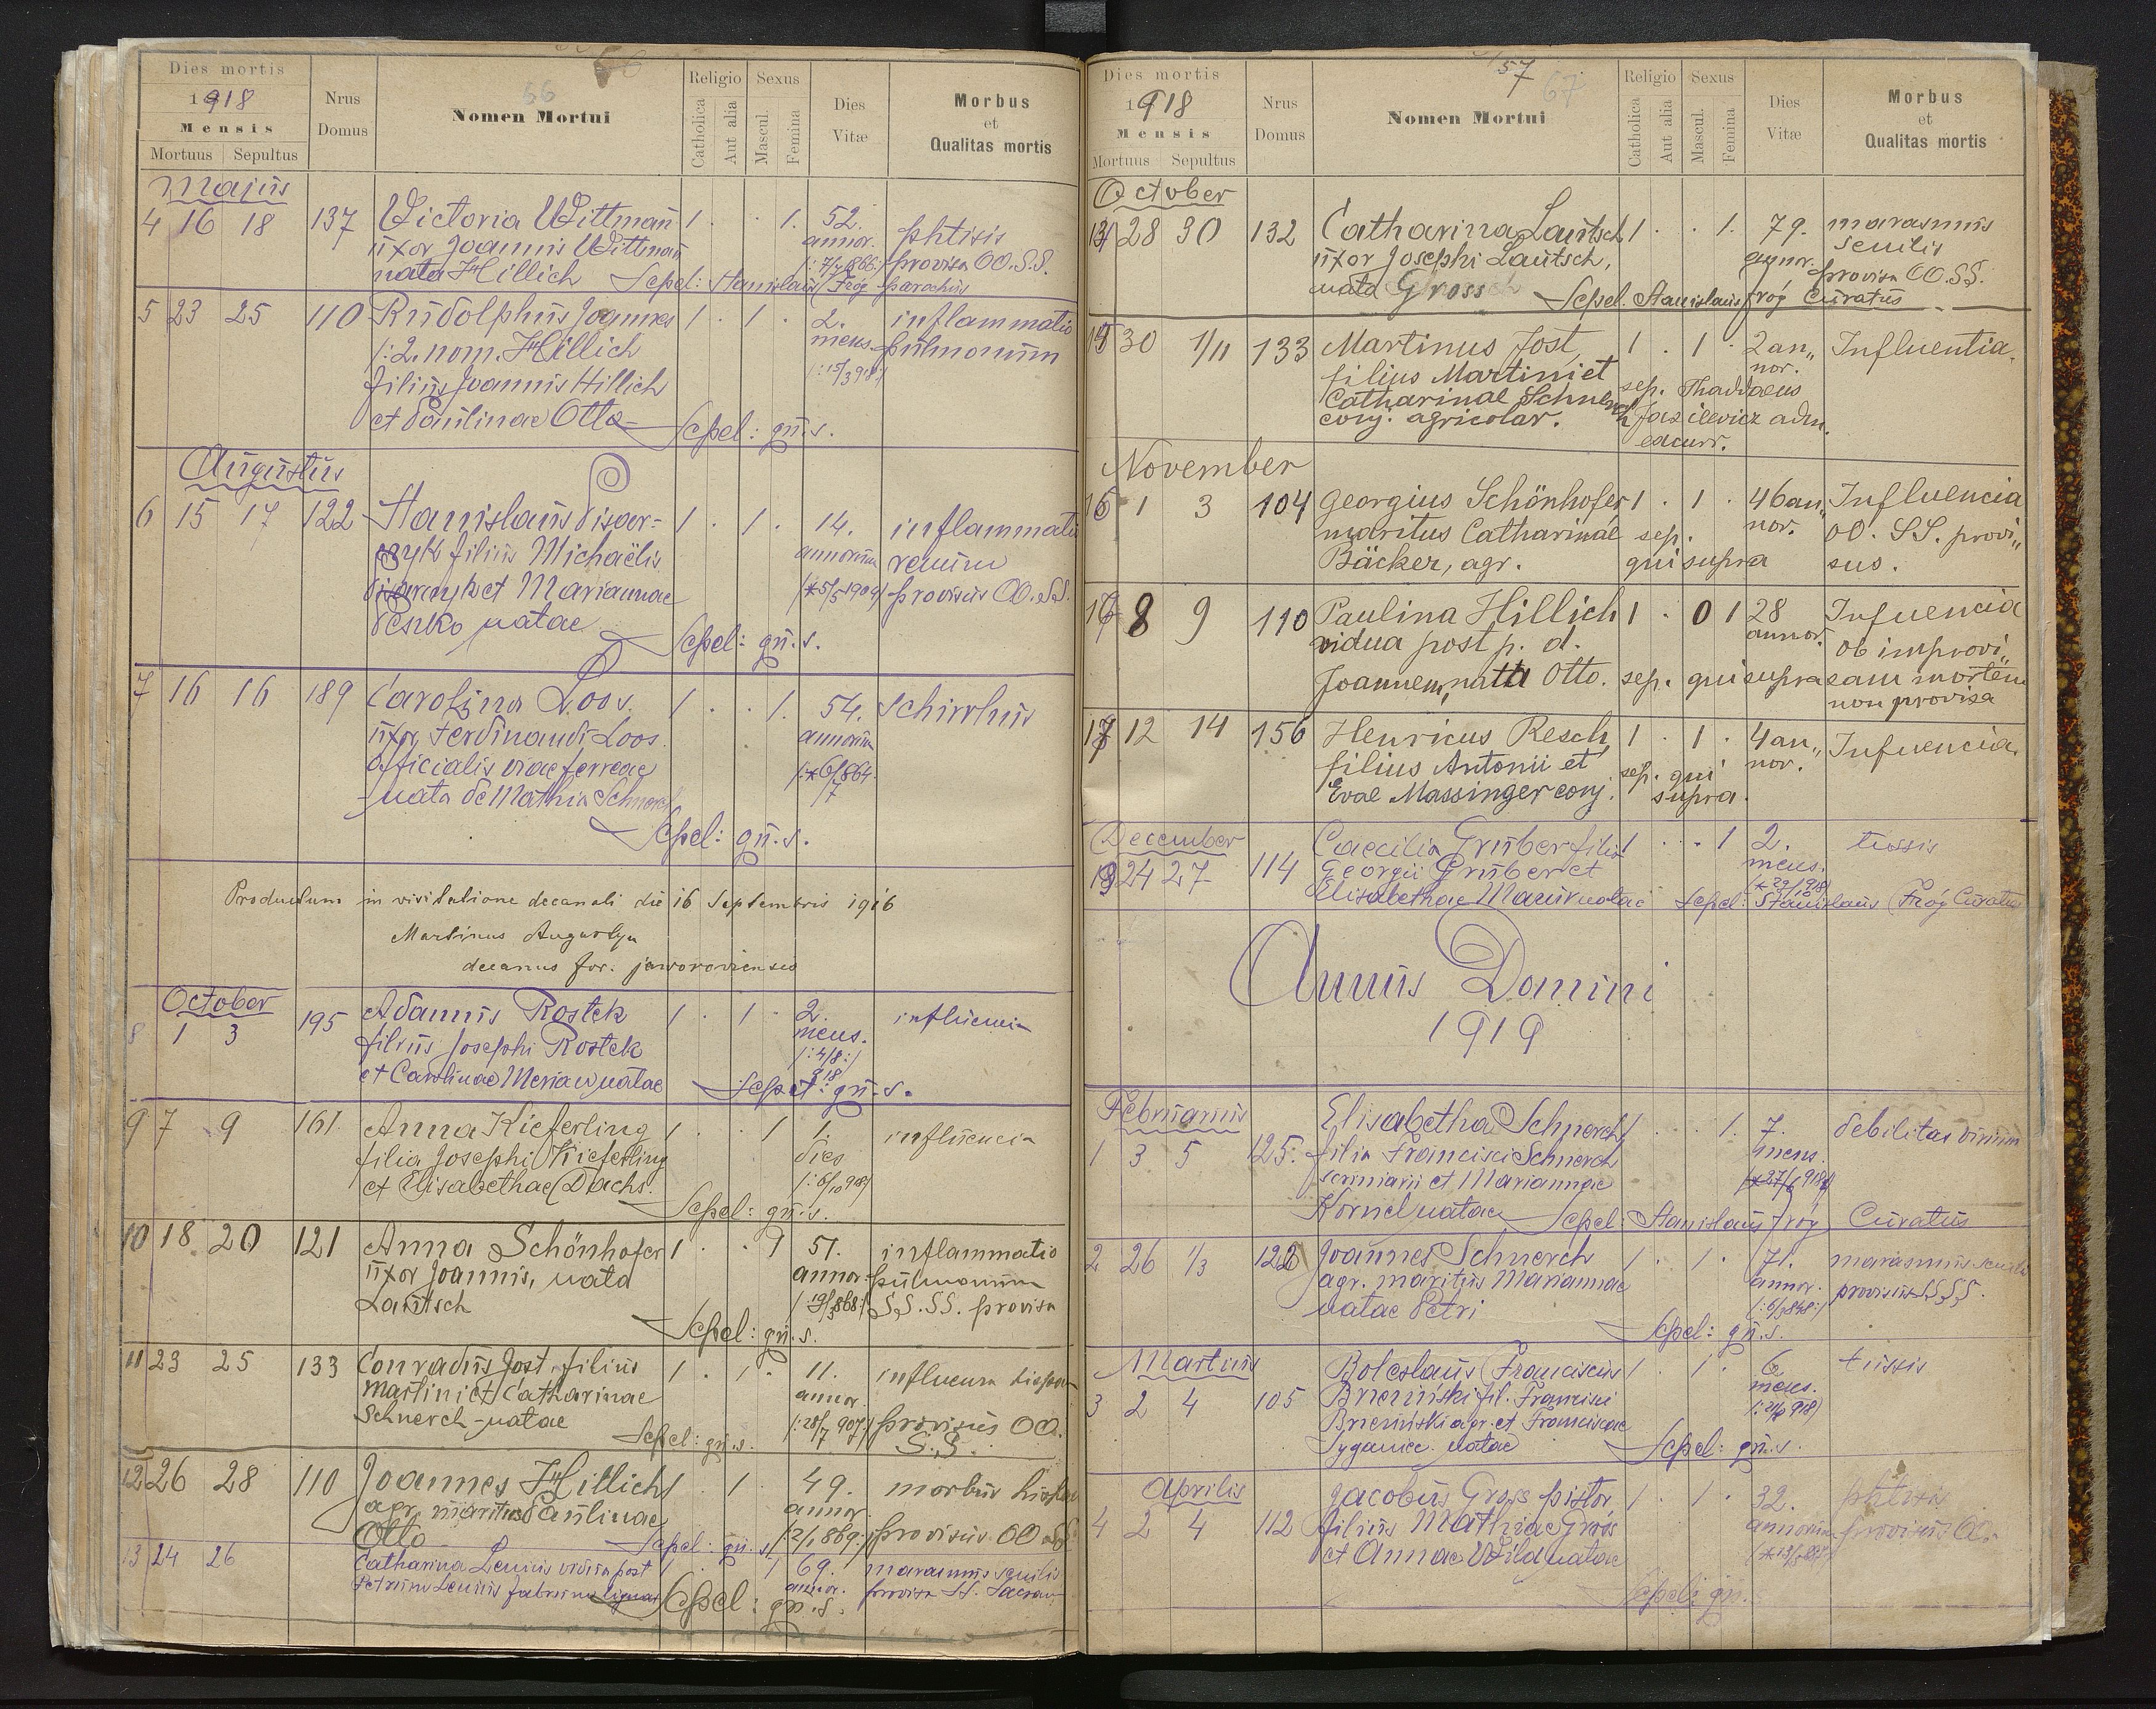 66
Dies mortis
1918
Mensis
Mortuus Sepultus
Nrus
Domus
Nomen Mortui
Religio
Catholica
Aut alia
Sexus
Mascul.
Femina
Dies
Vitæ
Morbus
et
Qualitas mortis
Majus
4 16 18 137 Victoria Wittman 1 . . 1. 52. phtisis
uxor Joannis Wittman annor. provisa OO.S.S.
nata Hillich Sepel: Stanislaus Fróg parochus
5 23 25 110 Rudolphus Joannes 1 . 1 . 2. inflammatio
/:2. nom. Hillich mens. pulmonum
filius Joannis Hillich /:15/3 918:/
et Paulinae Otto Sepel: qu.s.
Augustus
6 15 17 122 Stanislaus Pisar= 1 . 1 . 14. inflammatio
czyk filius Michaëlis annorum renum
Pisarczyk et Mariannae (*5/5 1904) provisus OO.S.S.
Peszko natae Sepel: qu.s.
7 16 16 189 Carolina Loos. 1 . . 1. 54. Schirrhus
uxor Ferdinandi Loos annorum
officialis viae ferreae /:*6/7 864
nata de Mathia Schnerch
Sepel: qu.s.
Productum in visitatione decanali die 16 Septembris 1918
Martinus Augustyn
decanus for. jaworoviensis
October
8 1 3 195 Adamus Rostek 1 . 1 . 2. influencia
filius Josephi Rostek mens.
et Carolinae natae /:4/8 918:/
Sepel: qu.s.
9 7 9 161. Anna Kieferling 1 . . 1 1. influencia
filia Josephi Kieferling dies
et Elisabethae Dachs. /:6/10 918/
Sepel: qu.s.
10 18 20 121 Anna Schönhofer 1 . . 1 51. inflammatio
uxor Joannis, nata annor. pulmonum
Lautsch S.S.SS. provisa
Sepel: qu.s.
11 23 25 133 Conradus Jost filius 1 . 1 . 11. influenza
Martini et Catharinae annor.
Schnerch natae /:28/7 907:/ provisus OO.
Sepel: qu.s. S.S.
12 26 28 110 Joannes Hillich 1 . 1 . 49. morbus
agr. maritus Paulinae annor.
Otto provisus OO
Sepel: qu.s.
13 24 26 Catharina vidua post 1 . . 1 69. marasmus senilis
Petrum annor. provisa SS. Sacram.
Sepel: qu.s.
57
67
Dies mortis
1918
Mensis
Mortuus Sepultus
Nrus
Domus
Nomen Mortui
Religio
Catholica
Aut alia
Sexus
Mascul.
Femina
Dies
Vitæ
Morbus
et
Qualitas mortis
October
14 28 30 132 Catharina Lautsch 1 . . 1. 79. marasmus
uxor Josephi Lautsch, annor. senilis
nata Gross provisa OO.SS.
Sepel. Stanislaus Fróg Curatus
15 30 1/11 133 Martinus Jost 1 . 1 . 2 an„ Influentia.
filius Martini et nor.
Catharinae Schnerch sep. Thaddaeus
conj. agricolar. adm.
excurr.
November
16 1 3 104 Georgius Schönhofer 1 . 1 . 46 an„ Influencia
maritus Catharinae sep. nor. OO. SS. provi„
Bäcker, agr. qui supra sus.
17 8 9 110 Paulina Hillich 1 . 0 1 28 Infuencia
vidua post p. d. annor. ob improvi„
Joannem, nata Otto. sep. qui supra sam mortem
non provisa
18 12 14 156 Henricus Resch 1 . 1 . 4 an„ Infuencia.
filius Antonii et sep. qui nor.
Evae Massinger conj. supra.
December
19 24 27 114 Caecilia Gruber filia 1 . . 1 2. tussis
Georgii Gruber et mens.
Elisabethae Maur natae Sepel: Stanislaus Fróg Curatus
Annus Domini
1919
Februarius
1 3 5 125. Elisabetha Schnerch 1 . . 1. 7. debilitas virium
filia Francisci Schnerch mens.
scriniarii et Mariannae
Kornel natae Sepel: Stanislaus Fróg Curatus
2 26 1/3 122 Joannes Schnerch 1 . 1 . 71. marasmus senilis
agr. maritus Mariannae annor. provisus S.S.S.
natae Petri
Sepel: qu.s.
Martius
3 2 4 105 Boleslaus Franciscus 1 . 1 . 6 tussis
fil. Francisci mens.
agr. et Franciscae
natae Sepel: qu.s.
Aprilis
4 2 4 112 Jacobus Gross pistor 1 . 1 . 32. phtisis
filius Mathiae Gross annorum provisus OO.
et Annae Wild natae
Sepel: qu.